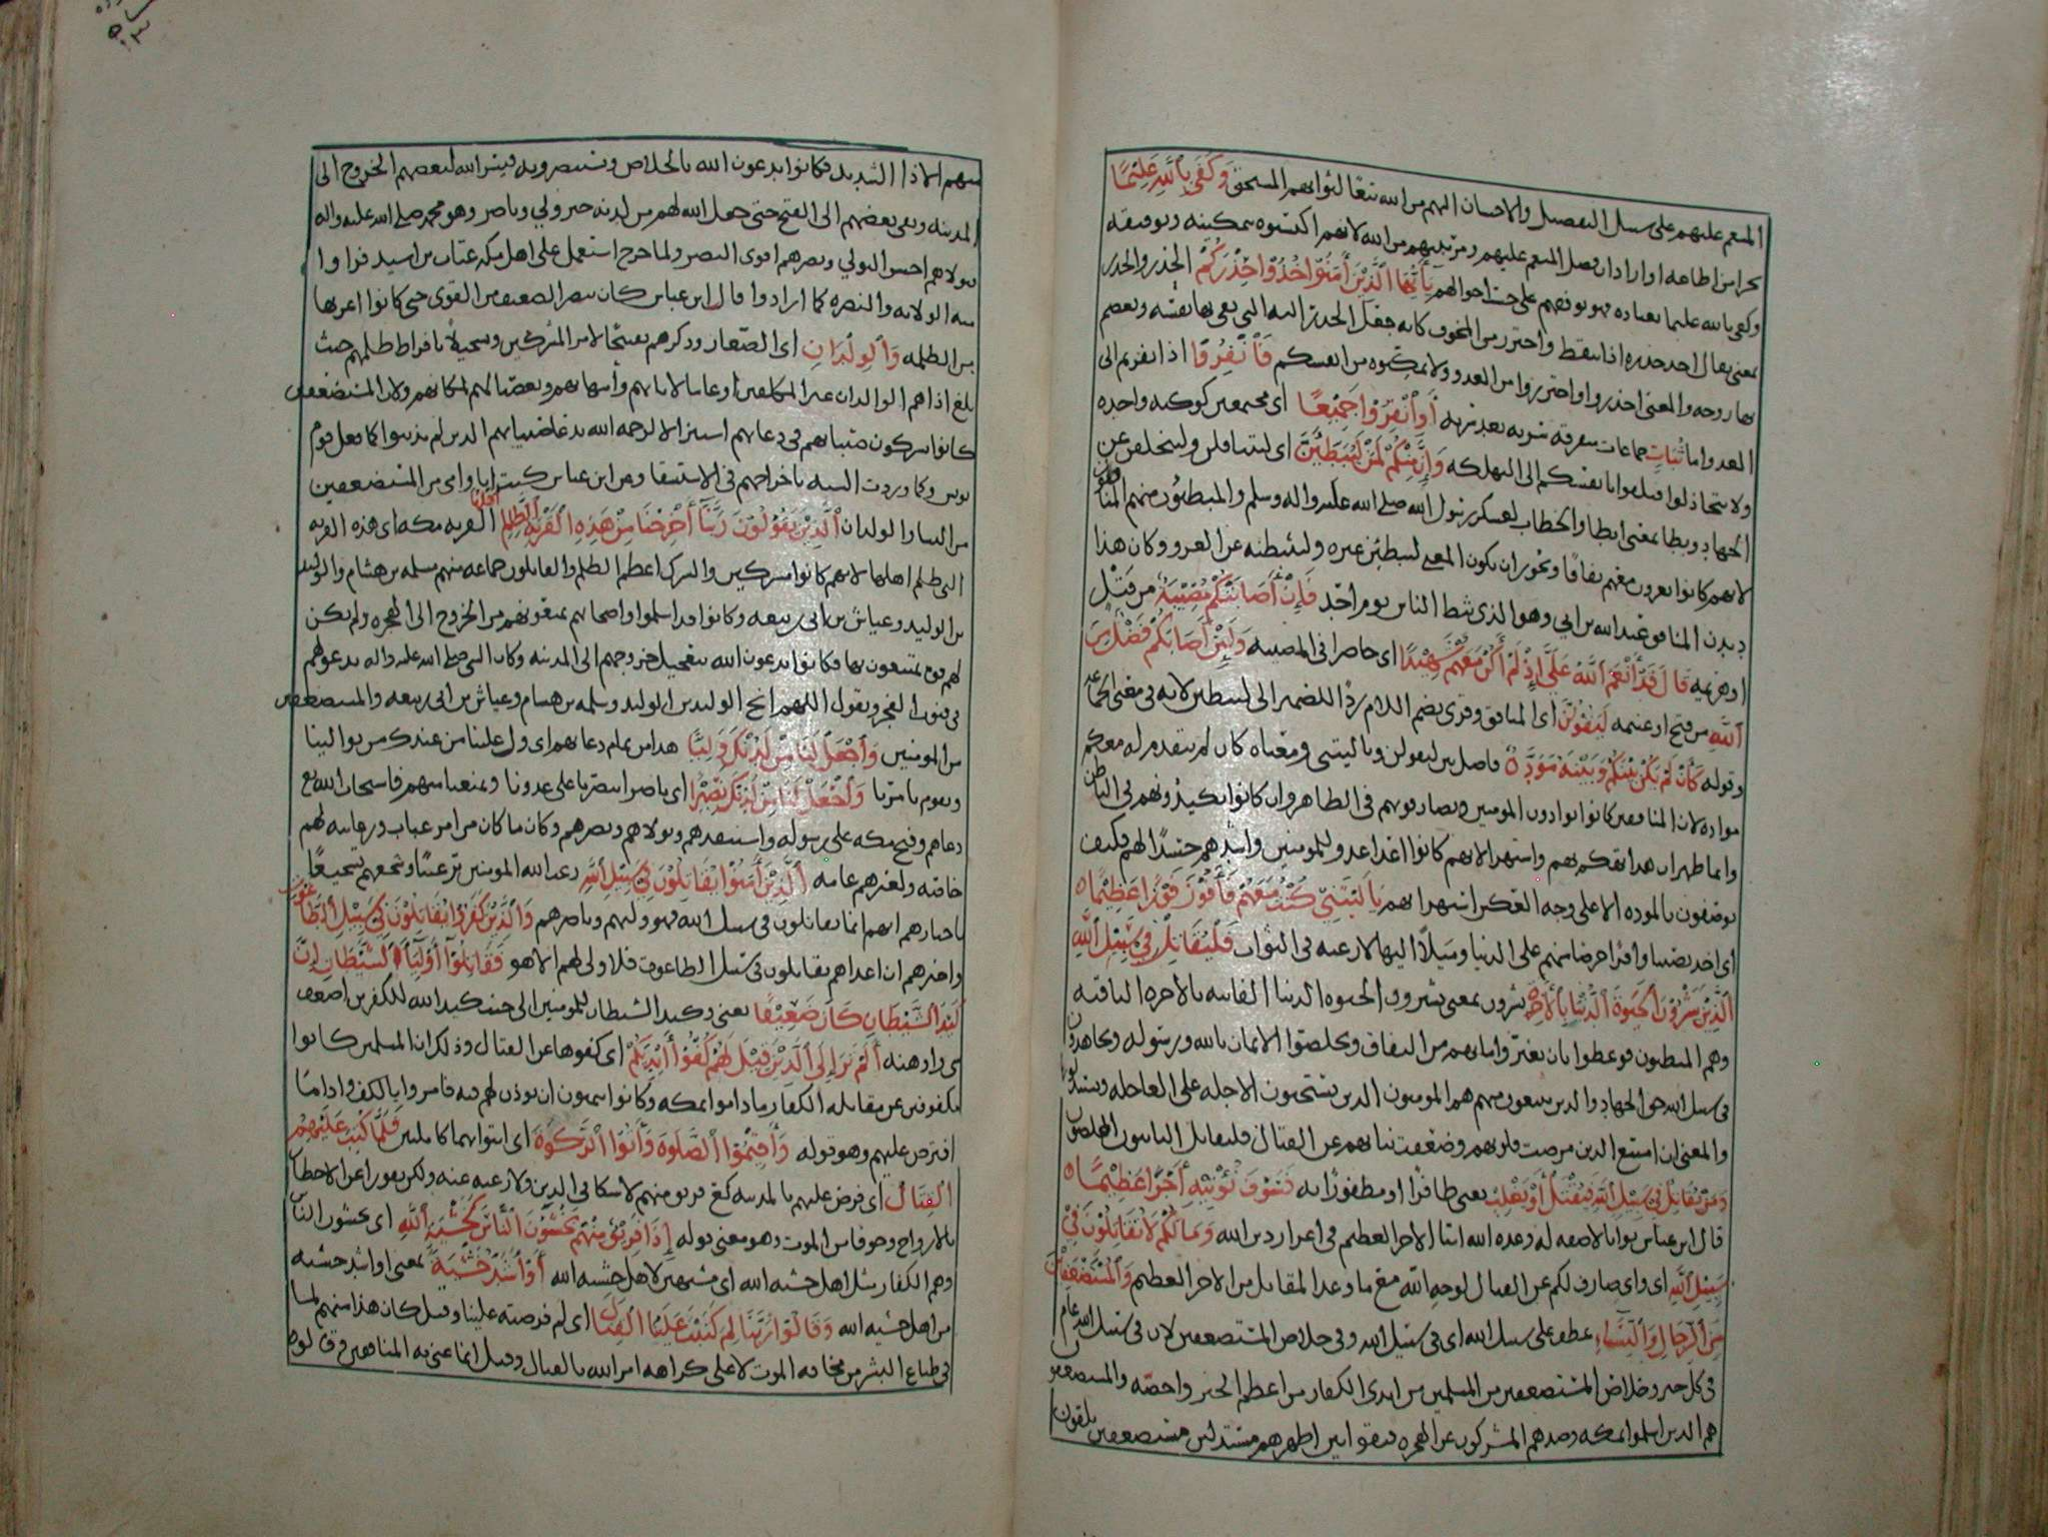 المنعم عليهم على سبيل التفضيل والاحسان اليهم من الله تبعا لثوابهم المستحق وَكَفَى بِاللَّهِ عَلِيمًا
بجزا من اطاعه او اراد ان فضل المنعم عليهم ومزيتهم من الله لانهم اكتسبوه بتمكينه وتوفيقه
وكفى بالله عليما بعباده فهو يوفقهم على حسب احوالهم يَا أَيُّهَا الَّذِينَ آمَنُوا خُذُوا حِذْرَكُمْ الحِذر والحذر
بمعنى يقال اخذ حذره اذا تيقظ واحترز من المخوف كانه جعل الحذر آلته التي يقي بها نفسه ويعصم
بها روحه والمعنى احذروا واحترزوا من العدو ولا تمكنوه من انفسكم فَانْفِرُوا اذا نفرتم الى
العدو اما ثُبَاتٍ جماعات متفرقة سرية بعد سرية أَوِ انْفِرُوا جَمِيعًا اى مجتمعين كوكبة واحدة
ولا تتخاذلوا فتلقوا بانفسكم الى التهلكة وَإِنَّ مِنْكُمْ لَمَنْ لَيُبَطِّئَنَّ اى ليتثاقلن وليتخلفن عن
الجهاد وبطا بمعنى ابطا والخطاب لعسكر رسول الله صلى الله عليه واله وسلم والمبطئون منهم المنافقون
لانهم كانوا يغزون معهم نفاقا ويجوز ان يكون المعنى ليبطئن غيره وليثبطنه عن الغزو وكان هذا
ديدن المنافق عبد الله بن ابي وهو الذي ثبط الناس يوم احد فَإِنْ أَصَابَتْكُمْ مُصِيبَةٌ من قتل
او هزيمة قَالَ قَدْ أَنْعَمَ اللَّهُ عَلَيَّ إِذْ لَمْ أَكُنْ مَعَهُمْ شَهِيدًا اى حاضرا فى المصيبة وَلَئِنْ أَصَابَكُمْ فَضْلٌ مِنَ
اللَّهِ من فتح او غنيمة لَيَقُولَنَّ اى المنافق وقرى بضم اللام ردا للضمير الى ليبطئن لانه فى معنى الجماعة
وقوله كَأَنْ لَمْ يَكُنْ بَيْنَكُمْ وَبَيْنَهُ مَوَدَّةٌ فاصل بين ليقولن ويا ليتنى ومعناه كان لم يتقدم له معكم
مواده لان المنافقين كانوا يوادون المومنين ويصادقونهم فى الظاهر وان كانوا يكيدونهم فى الباطن
وانما ظهر ان هذا تهكم بهم واستهزا لانهم كانوا اعدا عدو للمومنين واشدهم حسدا لهم فكيف
يوصفون بالمودة الا على وجه العكس استهزا بهم يَا لَيْتَنِي كُنْتُ مَعَهُمْ فَأَفُوزَ فَوْزًا عَظِيمًا
فَلْيُقَاتِلْ فِي سَبِيلِ اللَّهِ
الَّذِينَ يَشْرُونَ الْحَيَاةَ الدُّنْيَا بِالْآخِرَةِ يشرون بمعنى يشترون الحيوه الدنيا الفانيه بالاخره الباقيه
وهم المبطئون فوعظوا بان يغيروا ما بهم من النفاق ويخلصوا الايمان بالله ورسوله ويجاهدون
فى سبيل الله حق الجهاد والذين يبيعون منهم هم المومنون الذين يستحبون الاجله على العاجله ويستبدلونها
والمعنى ان امتنع الذين مرضت قلوبهم وضعفت نياتهم عن القتال فليقاتل الثابتون المخلصون
وَمَنْ يُقَاتِلْ فِي سَبِيلِ اللَّهِ فَيُقْتَلْ أَوْ يَغْلِبْ يعنى ظافرا او مظفورا به فَسَوْفَ نُؤْتِيهِ أَجْرًا عَظِيمًا
قال ابن عباس ثوابا لا صفة له وعده الله ايتا الاجر العظيم فى اعزاز دين الله وَمَا لَكُمْ لَا تُقَاتِلُونَ فِي
سَبِيلِ اللَّهِ اى واى صارف لكم عن القتال لوجه الله مع ما وعد المقاتل من الاجر العظيم وَالْمُسْتَضْعَفِينَ
مِنَ الرِّجَالِ وَالنِّسَاءِ عطف على سبيل الله اى فى سبيل الله وفى خلاص المستضعفين لان فى سبيل الله عام
فى كل خير وخلاص المستضعفين من المسلمين من ايدى الكفار من اعظم الخير واخصه والمستضعفون
هم الذين اسلموا بمكه وصدهم المشركون عن الهجره فبقوا بين اظهرهم مستذلين مستضعفين يلقون
منهم الاذا الشديد فكانوا يدعون الله بالخلاص ويستنصرونه فيسر الله لبعضهم الخروج الى
المدينه وبقى بعضهم الى الفتح حتى جعل الله لهم من لدنه خير ولي وناصر وهو محمد صلى الله عليه واله
فتولاهم احسن التولي ونصرهم اقوى النصر ولما خرج استعمل على اهل مكه عتاب بن اسيد فراوا
منه الولايه والنصره كما ارادوا قال ابن عباس كان ينصر الضعيف من القوى حتى كانوا اعز بها
من الظلمه وَالْوِلْدَانِ اى الصغار وذكرهم تعجيبا لامر المشركين وتسجيلا بافراط ظلمهم حيث
بلغ اذاهم الولدان غير المكلفين ارغاما لابائهم وامهاتهم وبغضا لهم لمكانهم ولان المستضعفين
كانوا يشركون صبيانهم فى دعائهم استنزالا لرحمه الله بدعا صبيانهم الذين لم يذنبوا كما فعل قوم
يونس وكما وردت السنه باخراجهم فى الاستسقا وعن ابن عباس كنت انا وامى من المستضعفين
من النسا والولدان الَّذِينَ يَقُولُونَ رَبَّنَا أَخْرِجْنَا مِنْ هَذِهِ الْقَرْيَةِ الظَّالِمِ أَهْلُهَا القريه مكه اى هذه القريه
التى ظلم اهلها لانهم كانوا مشركين والشرك اعظم الظلم والقائلون جماعه منهم سلمه بن هشام والوليد
بن الوليد وعياش بن ابى ربيعه وكانوا قد اسلموا واصحابهم يمنعونهم من الخروج الى الهجره ولم يكن
لهم قوم يمتنعون بها فكانوا يدعون الله بتعجيل خروجهم الى المدينه وكان النبى صلى الله عليه واله يدعو لهم
فى قنوت الفجر ويقول اللهم انج الوليد بن الوليد وسلمه بن هشام وعياش بن ابى ربيعه والمستضعفين
من المومنين وَاجْعَلْ لَنَا مِنْ لَدُنْكَ وَلِيًّا هذا من تمام دعائهم اى ول علينا من عندك من يوالينا
ويقوم بامرنا وَاجْعَلْ لَنَا مِنْ لَدُنْكَ نَصِيرًا اى ناصرا ينصرنا على عدونا ويمنعنا منهم فاستجاب الله تع
دعاهم وفتح مكه على رسوله واستنقذهم وتولاهم ونصرهم وكان ما كان من امر عتاب ورعايته لهم
خاصه ولغيرهم عامه الَّذِينَ آمَنُوا يُقَاتِلُونَ فِي سَبِيلِ اللَّهِ رغب الله المومنين ترغيبا وشجعهم تشجيعا
باخبارهم انهم انما يقاتلون فى سبيل الله فهو وليهم وناصرهم وَالَّذِينَ كَفَرُوا يُقَاتِلُونَ فِي سَبِيلِ الطَّاغُوتِ
واخبرهم ان اعداهم يقاتلون فى سبيل الطاغوت فلا ولى لهم الا هو فَقَاتِلُوا أَوْلِيَاءَ الشَّيْطَانِ إِنَّ
كَيْدَ الشَّيْطَانِ كَانَ ضَعِيفًا يعنى وكيد الشيطان للمومنين الى جنب كيد الله للكفرين اضعف
شى واوهنه أَلَمْ تَرَ إِلَى الَّذِينَ قِيلَ لَهُمْ كُفُّوا أَيْدِيَكُمْ اى كفوها عن القتال وذلك ان المسلمين كانوا
مكفوفين عن مقاتله الكفار ما داموا بمكه وكانوا يتمنون ان يوذن لهم فيه فامروا بالكف وادا ما
افترض عليهم وهو قوله وَأَقِيمُوا الصَّلَاةَ وَآتُوا الزَّكَاةَ اى ايتوا بهما كاملين فَلَمَّا كُتِبَ عَلَيْهِمُ
الْقِتَالُ اى فرض عليهم بالمدينه كع فريق منهم لا شكا فى الدين ولا رغبه عنه ولكن نفورا عن الاخطار
بالارواح وخوفا من الموت وهو معنى قوله إِذَا فَرِيقٌ مِنْهُمْ يَخْشَوْنَ النَّاسَ كَخَشْيَةِ اللَّهِ اى يخشون الناس
وهم الكفار مثل اهل خشيه الله اى مشبهين لاهل خشيه الله أَوْ أَشَدَّ خَشْيَةً بمعنى او اشد خشيه
من اهل خشيه الله وَقَالُوا رَبَّنَا لِمَ كَتَبْتَ عَلَيْنَا الْقِتَالَ اى لم فرضته علينا وقيل كان هذا منهم لما
فى طباع البشر من مخافه الموت لا على كراهه امر الله بالقتال وقيل انما عنى به المنافقين